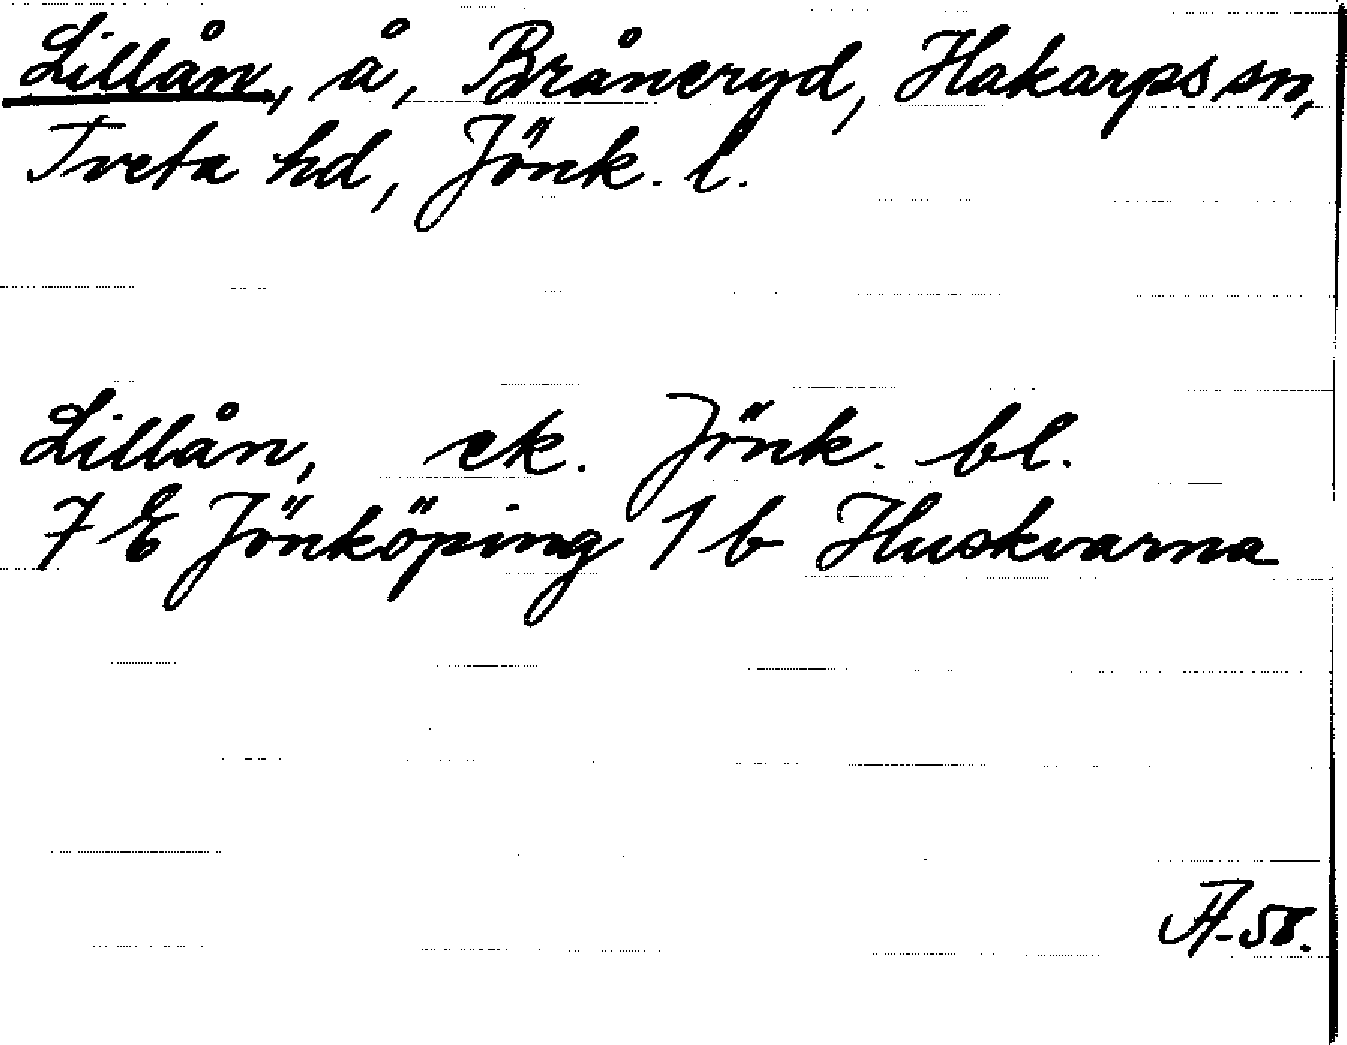 Lillån, å, Bråneryd, Hakarps sn,
Tveta hd, Jönk. l.
Lillån, ek. Jönk. bl.
7 E Jönköping 1 b Huskvarna